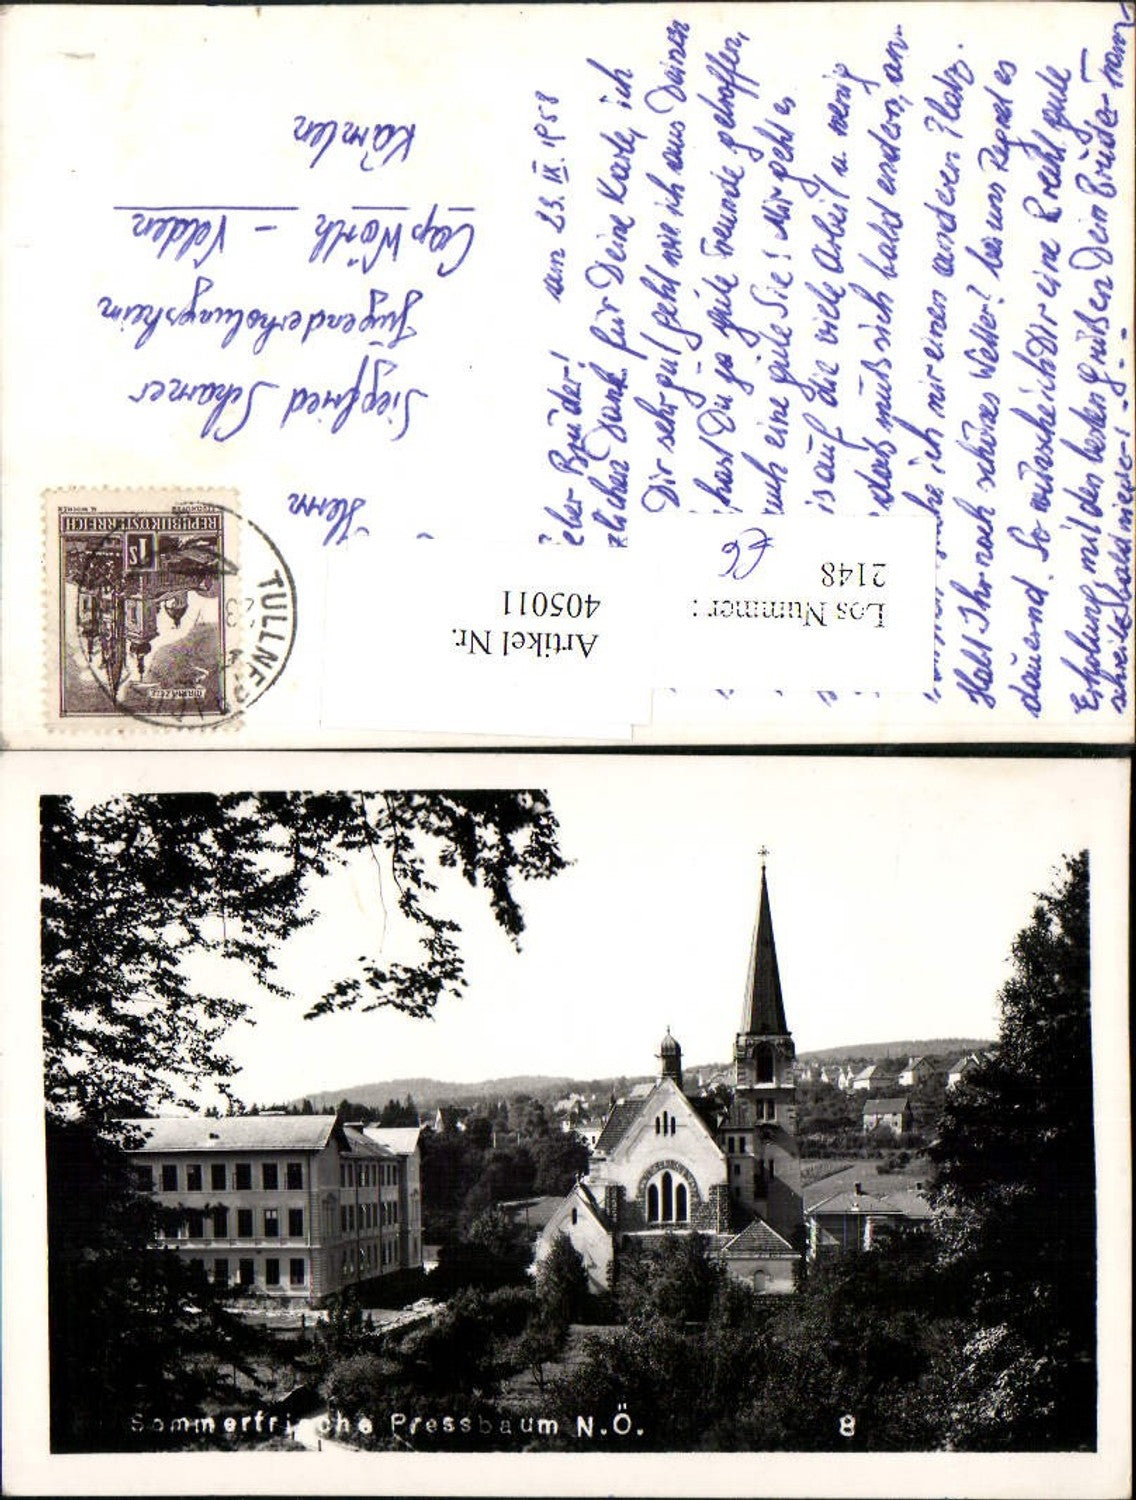 Lieber Bruder! am 23. IX. 1958
Herzlichen Dank für Deine Karte, ich
Dir sehr gut geht wie ich aus Deiner
hast Du ja gute Freunde getroffen,
auch eine gute Sie! Mir geht es
bis auf die viele Arbeit u. wenig
das muß sich bald ändern, an-
suche ich mir einen anderen Platz.
Habt Ihr noch schönes Wetter? bei uns Regnet es
dauernd. So wünsche ich Dir eine Recht gute
Erholung mit den besten grüßen Dein Bruder Franz
schreibe bald wieder!
Herrn
Siegfried Scharner
Jugenderholungsheim
Cap Wörth - Velden
Kärnten
REPUBLIK ÖSTERREICH
1 S
MARIAZELL
TULLNERBACH
Artikel Nr.
405011
Los Nummer :
2148
€6
Sommerfrische Pressbaum N.Ö. 8